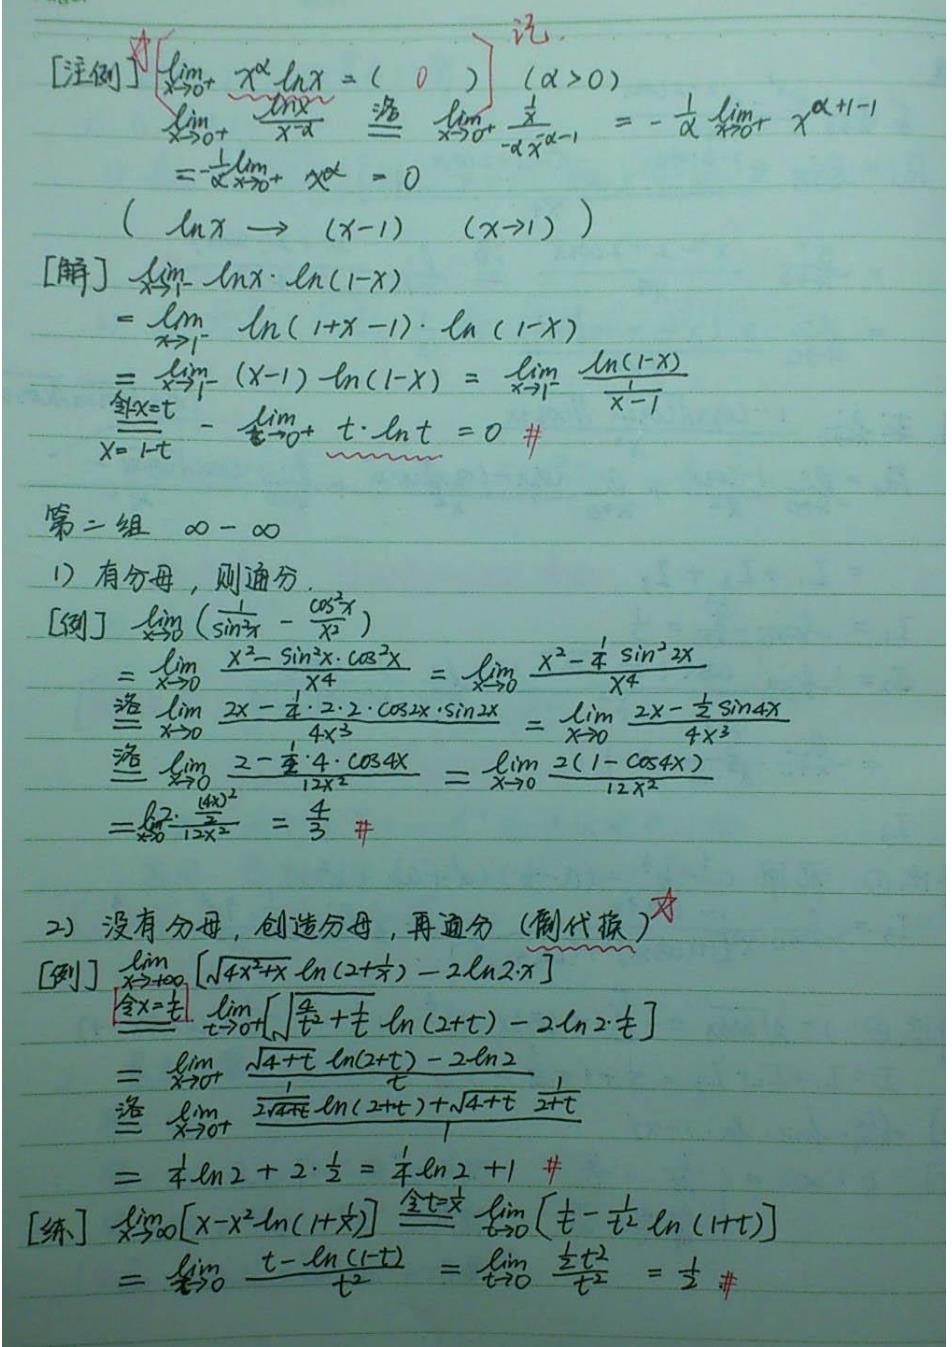 记.
[注例] lim x→0⁺ x^α lnx = ( 0 ) (α>0)
lim x→0⁺ lnx / x^(-α) 洛= lim x→0⁺ (1/x) / (-αx^(-α-1)) = -1/α lim x→0⁺ x^(α+1-1)
= -1/α lim x→0⁺ x^α = 0
( lnx → (x-1) (x→1) )
[解] lim x→1⁻ lnx · ln(1-x)
= lim x→1⁻ ln(1+x-1) · ln(1-x)
= lim x→1⁻ (x-1) ln(1-x) = lim x→1⁻ ln(1-x) / (1/(x-1))
令1-x=t = x=1-t - lim t→0⁺ t·lnt = 0 #
第二组 ∞-∞
1) 有分母, 则通分.
[例] lim x→0 (1/sin²x - cos²x/x²)
= lim x→0 (x² - sin²x·cos²x)/x⁴ = lim x→0 (x² - 1/4 sin²2x)/x⁴
洛= lim x→0 (2x - 1/4·2·2·cos2x·sin2x)/4x³ = lim x→0 (2x - 1/2 sin4x)/4x³
洛= lim x→0 (2 - 1/2·4·cos4x)/12x² = lim x→0 2(1-cos4x)/12x²
= lim x→0 (2·(4x)²/2)/12x² = 4/3 #
2) 没有分母, 创造分母, 再通分 (倒代换) ☆
[例] lim x→+∞ [√(4x²+x) ln(2+1/x) - 2ln2·x]
令x=1/t = lim t→0⁺ [√(4/t²+1/t) ln(2+t) - 2ln2·1/t]
= lim x→0⁺ (√(4+t) ln(2+t) - 2ln2)/t
洛= lim x→0⁺ (1/(2√(4+t)) ln(2+t) + √(4+t) 1/(2+t))/1
= 1/4 ln2 + 2·1/2 = 1/4 ln2 + 1 #
[练] lim x→∞ [x-x² ln(1+1/x)] 令t=1/x = lim t→0 [1/t - 1/t² ln(1+t)]
= lim t→0 (t-ln(1-t))/t² = lim t→0 (1/2 t²)/t² = 1/2 #